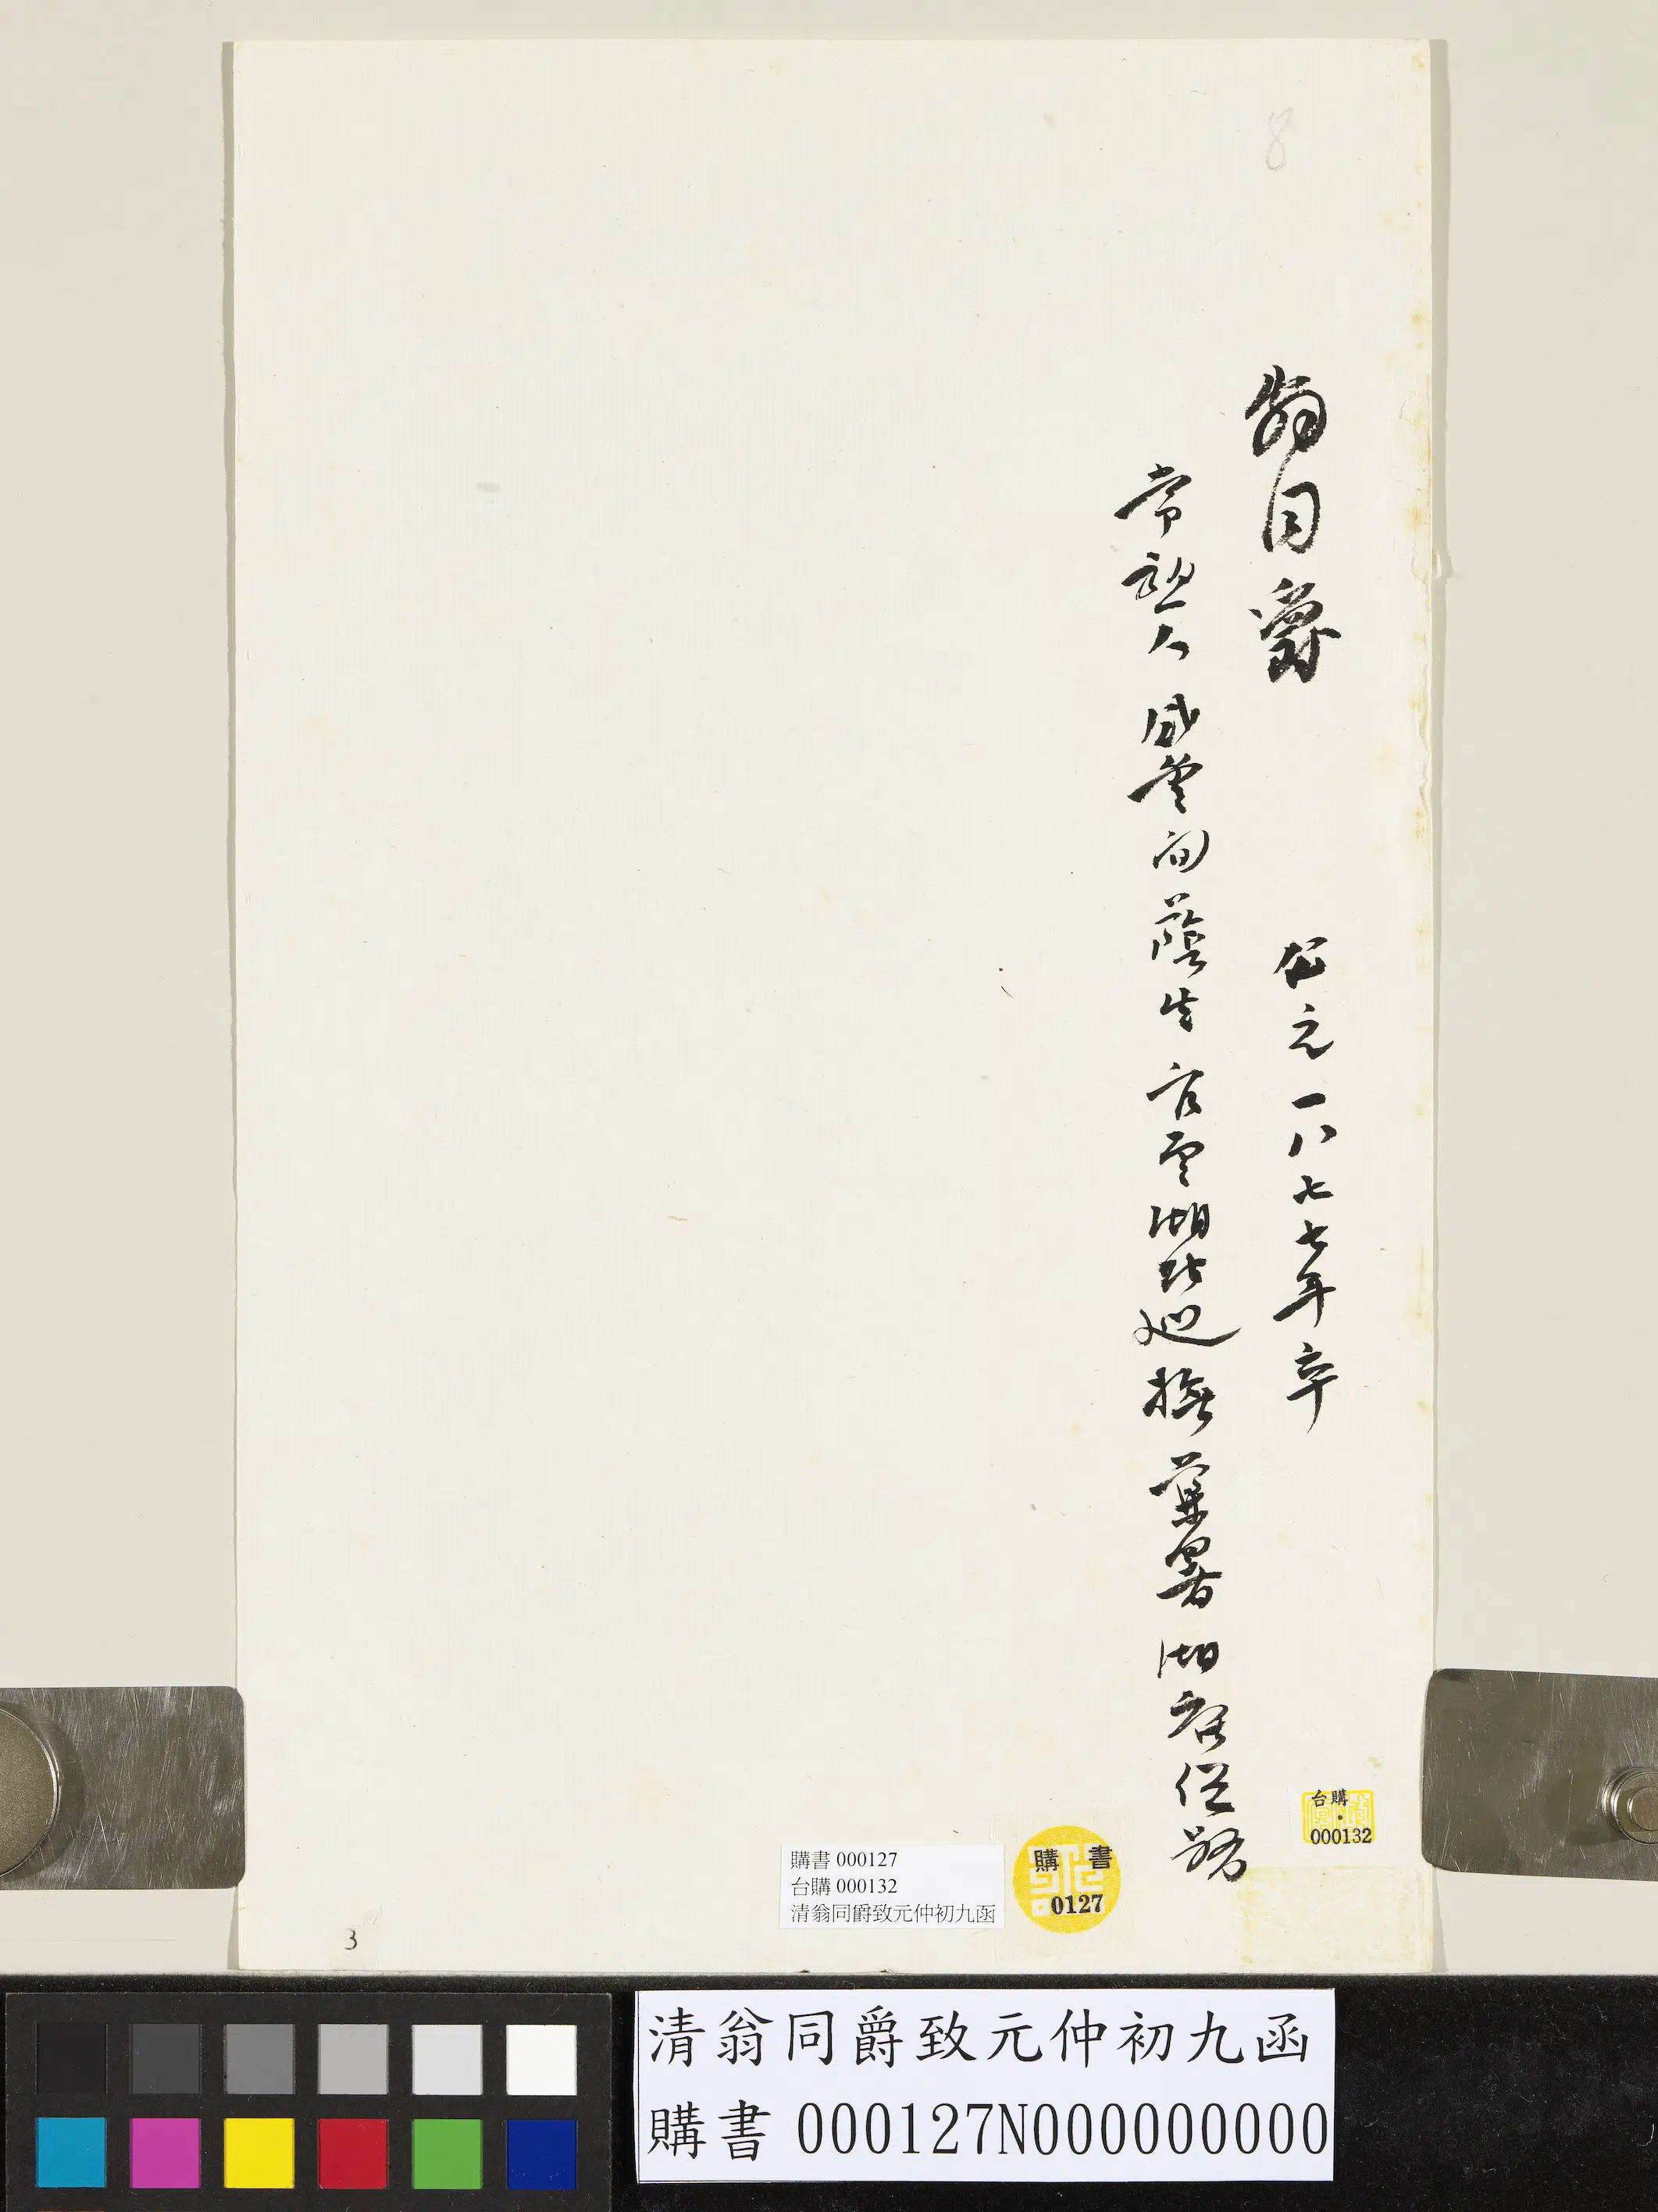 8
翁同爵 公元一八七七年卒
常熟人 咸豐間蔭生 官至湖北巡撫 兼署湖廣總督
台購
000132
購書
0127
購書 000127
台購 000132
清翁同爵致元仲初九函
3
清翁同爵致元仲初九函
購書 000127N000000000